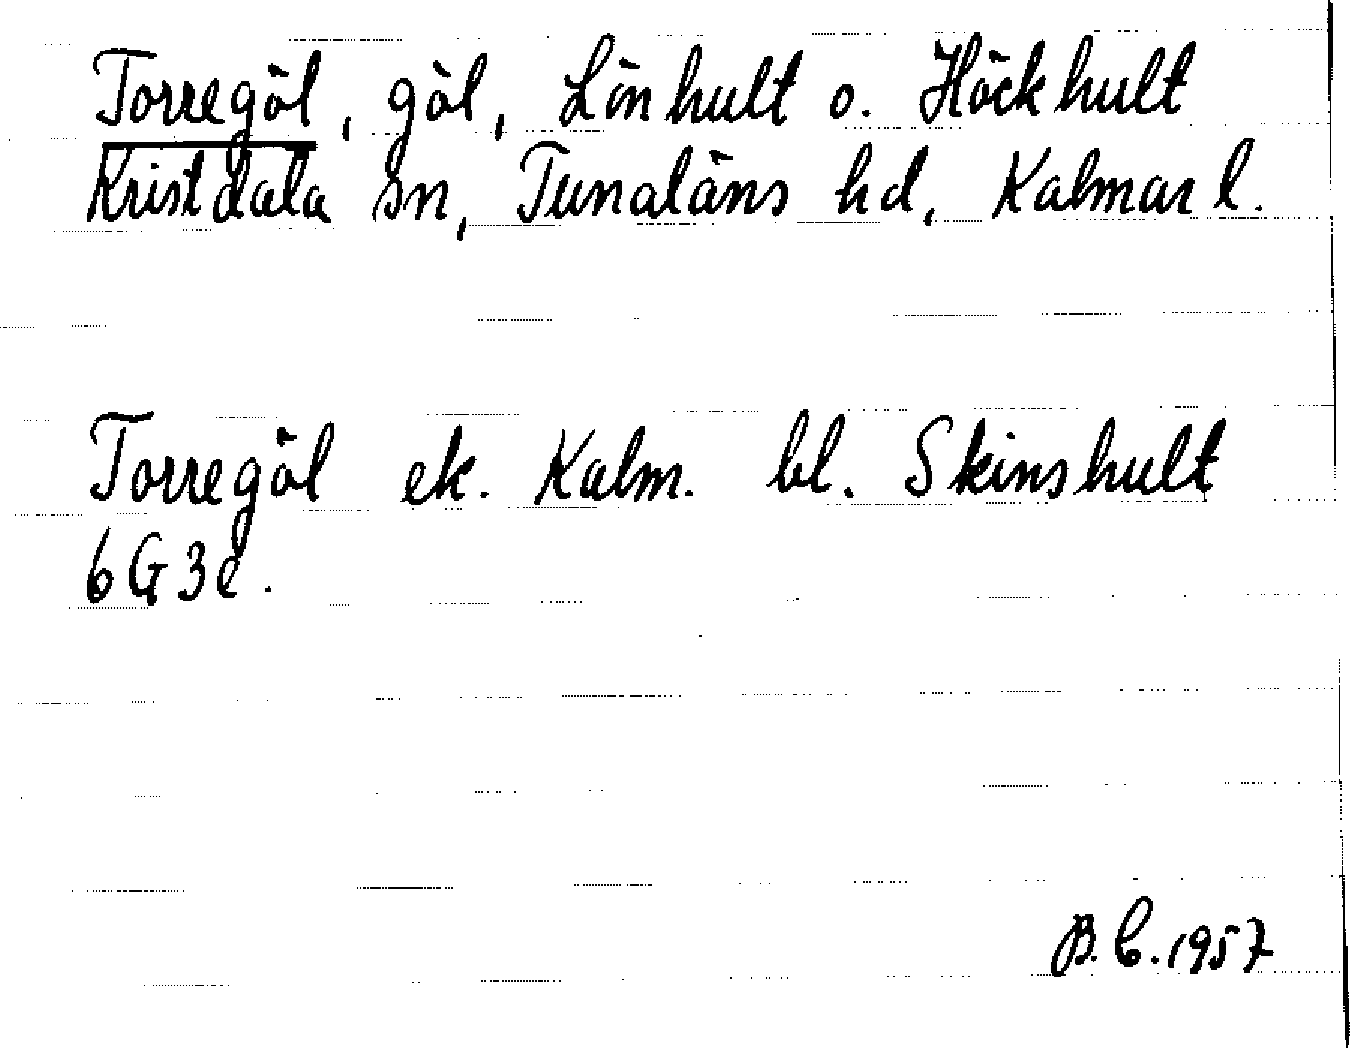 Torregöl, göl, Lönhult o. Höckhult
Kristdala sn, Tunaläns hd, Kalmar l.
Torregöl ek. Kalm. bl. Skinshult
6G3e.
B.C. 1957